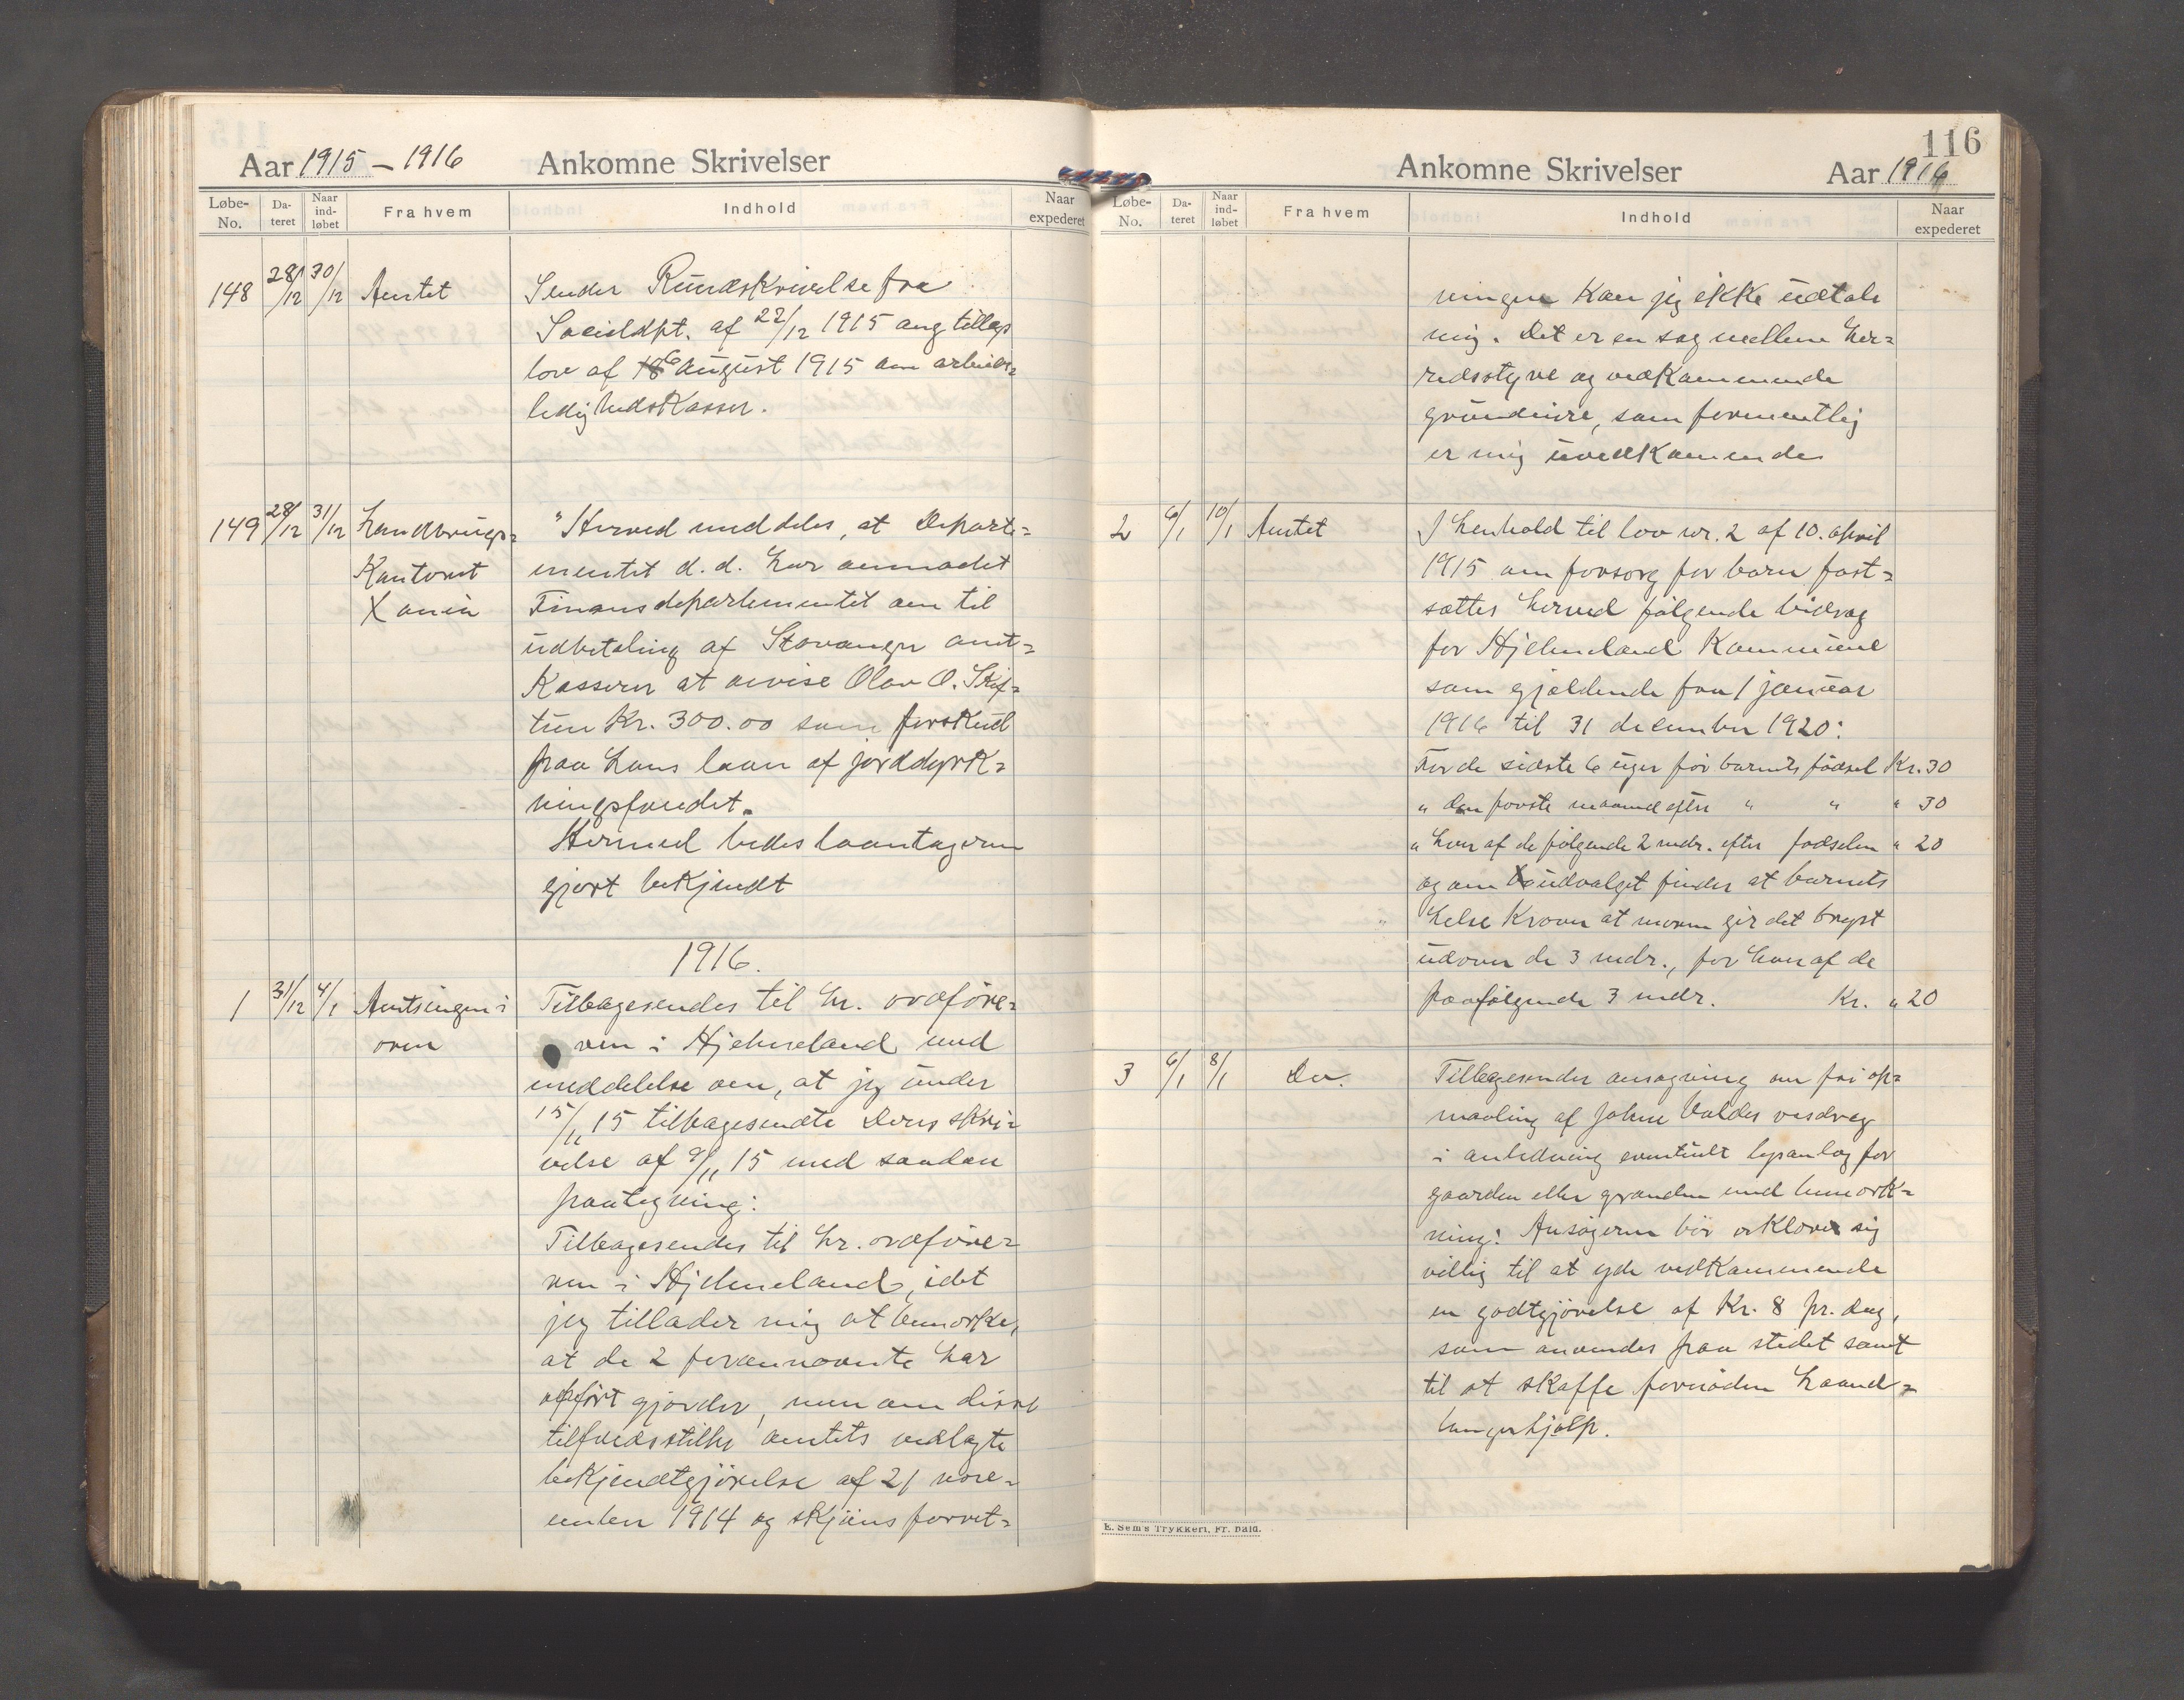 Aar 1915 – 1916 Ankomne Skrivelser
Løbe-No. Da-teret Naar ind-løbet Fra hvem Indhold Naar expederet
148 28/12 30/12 Amtet Sender Rundskrivelse fra
Socialdpt. af 22/12 1915 ang tillægs
lov af 6 august 1915 om arbeids=
ledighedskasser.
149 28/12 31/12 Landbrugs= "Herved meddeles, at Departe=
Kontoret mentet d.d. har anmodet
Xania Finansdepartementet om til
udbetaling af Stavanger amt=
Kasserer at anvise Olav O. Skif=
tun Kr. 300.00 som forskud
paa hans laan af jorddyrk=
ningsfondet.
Hermed bedes laantageren
gjort bekjendt
1916.
1 31/12 4/1 Amtsingeni Tilbagesendes til hr. ordføre=
øren ren i Hjelmeland med
meddelelse om, at jeg under
15/11 15 tilbagesendte Deres skri=
velse af 9/11 15 med saadan
paategning:
Tilbagesendes til hr. ordføre=
ren i Hjelmeland, idet
jeg tillader mig at bemerke,
at de 2 forannævnte har
opført gjærder, men om disse
tilfredsstiller amtets vedlagte
bekjendtgjørelse af 21 nove=
mber 1914 og skjøns forret=
116
Ankomne Skrivelser Aar 1916
Løbe-No. Da-teret Naar ind-løbet Fra hvem Indhold Naar expederet
ningen kan jeg ikke udtale
mig. Det er en sag mellem her=
redsstyre og vedkommende
grundeiere, som formentlig
er mig uvedkommende
2 6/1 10/1 Amtet I henhold til lov nr. 2 af 10. april
1915 om forsorg for barn fast=
sættes herved følgende bidrag
for Hjelmeland Kommune
som gjældende fra 1 januar
1916 til 31 december 1920:
For de sidste 6 uger før barnets fødsel Kr. 30
" den første maaned efter " " " 30
" hver af de følgende 2 mdr. efter fødselen " 20
og om udvalget finder at barnets
helse kræver at moren gir det bryst
udover de 3 mdr., for hver af de
paafølgende 3 mdr. Kr. " 20
3 6/1 8/1 Do. Tilbagesender ansøgning om fri op=
maaling af John Valdes vasdrag
i anledning eventuelt lysanlæg for
gaarden eller granden med bemerk=
ning: Ansøgeren bør erklære sig
villig til at yde vedkommende
en godtgjørelse af Kr. 8 pr. dag,
som anvendes paa stedet samt
til at skaffe fornøden haand=
langerhjælp.
E. Sem's Trykkeri, Fr. hald.